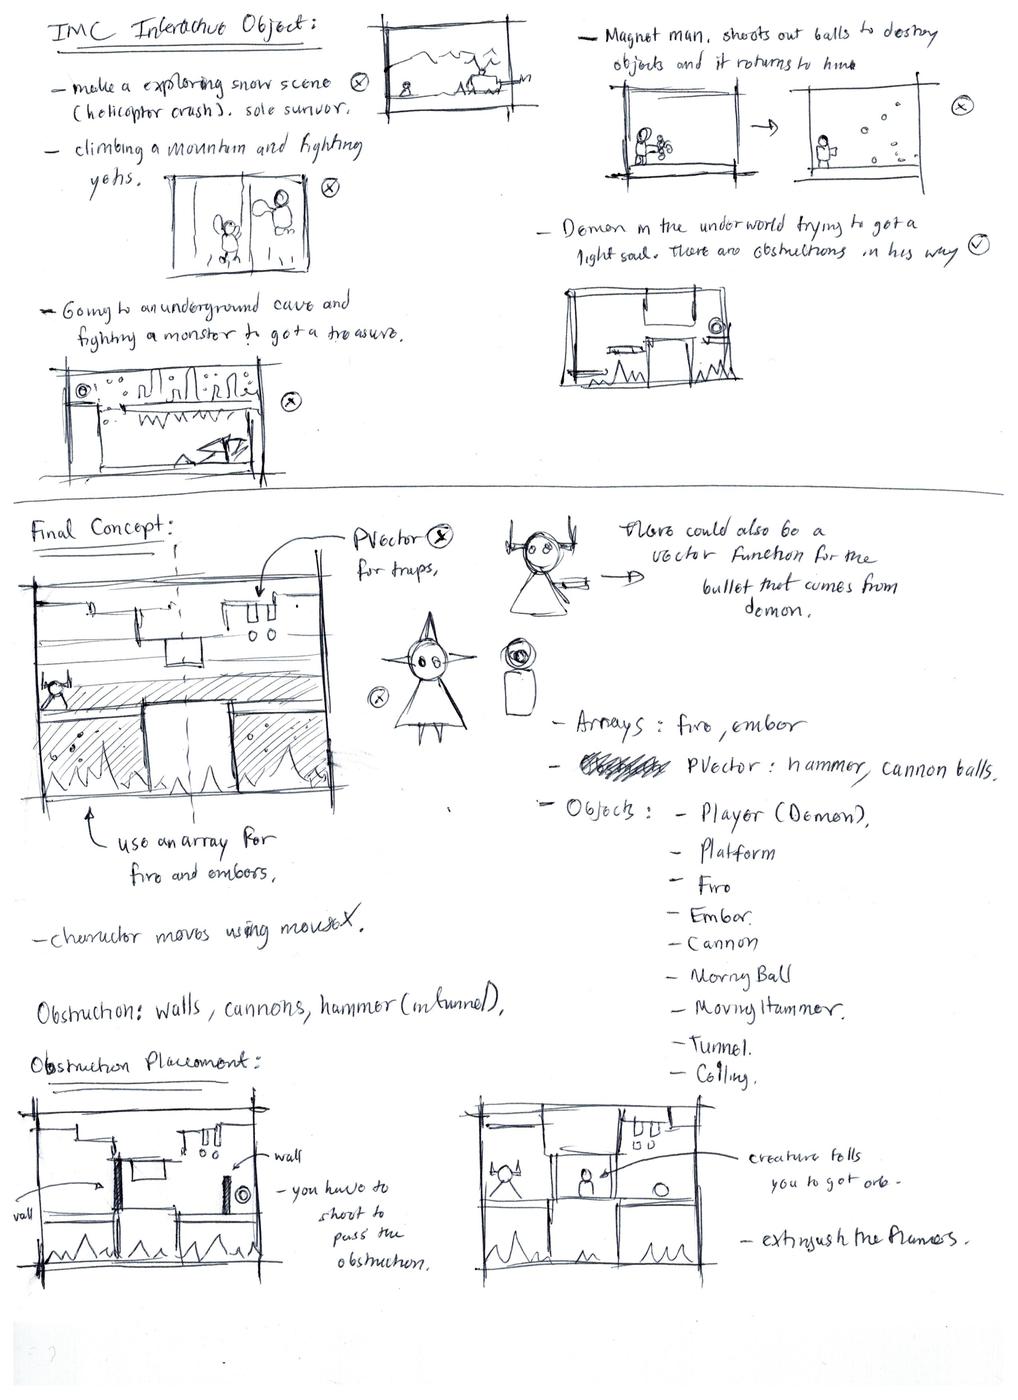 IMC Interactive Object:
- make a exploring snow scene
(helicopter crash). sole survivor.
- climbing a mountain and fighting
yetis.
- Going to an underground cave and
fighting a monster to get a treasure.
- Magnet man. shoots out balls to destroy
objects and it returns to him
- Demon in the underworld trying to get a
light soul. There are obstructions in his way
Final Concept:
PVector
for traps.
There could also be a
vector function for the
bullet that comes from
demon.
use an array for
fire and embers.
- character moves using mouseX.
Obstruction: walls, cannons, hammer (in tunnel).
- Arrays: fire, ember
- PVector: hammer, cannon balls.
- Objects: - Player (Demon).
- Platform
- Fire
- Ember.
- Cannon
- Moving Ball
- Moving Hammer.
- Tunnel.
- Ceiling.
Obstruction Placement:
wall
wall
- you have to
shoot to
pass the
obstruction.
creature tells
you to get orb.
- extinguish the flames.